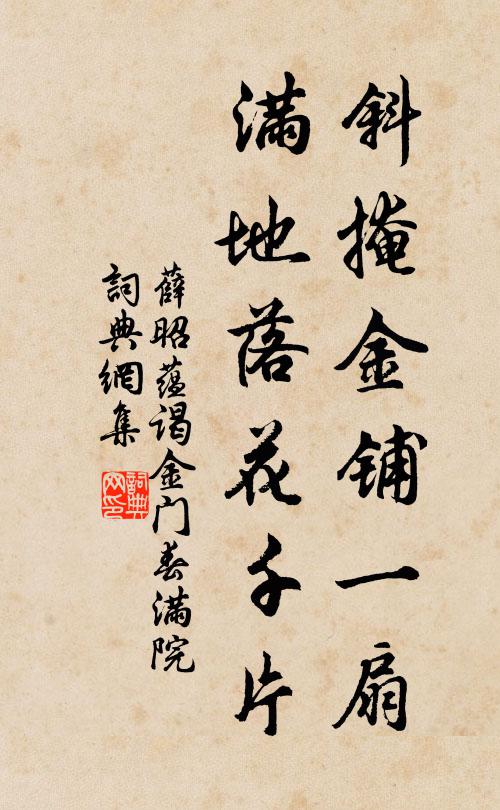 斜掩金铺一扇
满地落花千片
薛昭蕴谒金门春满院
词典网集
词典网印